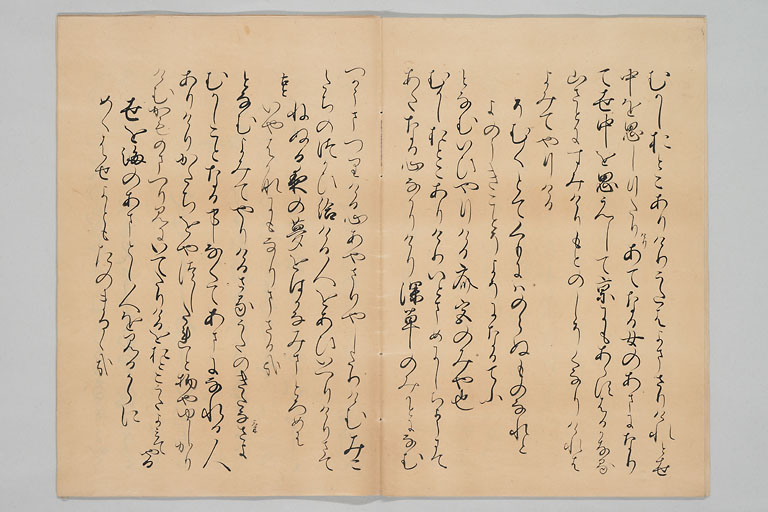 むかしおとこありけりうたはよまさりけれと世
中を思しりたりけりあてなる女のあまになり
て世中を思うんして京にもあらすはるかなる
山さとにすみけりもとのしそくなりけれは
よみてやりける
そむくとて雲にはのらぬものなれと
よのうきことそよそになるてふ
となむいひやりける斎宮のみや也
むかしおとこありけりいとまめにしちようにて
あたなる心なかりけり深草のみかとになむ
つかうまつりける心あやまりやしたりけむみこ
たちのつかひ給ける人をあひいへりけりさて
ねぬる夜の夢をはかなみまとろめは
いやはかなにもなりまさる哉
となむよみてやりけるさるうたのきたなけさよ
むかしことなる事なくてあまになれる人
ありけりかたちをやつしたれと物やゆかしかり
けむかものまつり見にいてたりけるをおとこうたよみてやる
世を海のあまとし人を見るからに
めくはせよともたのまるゝ哉